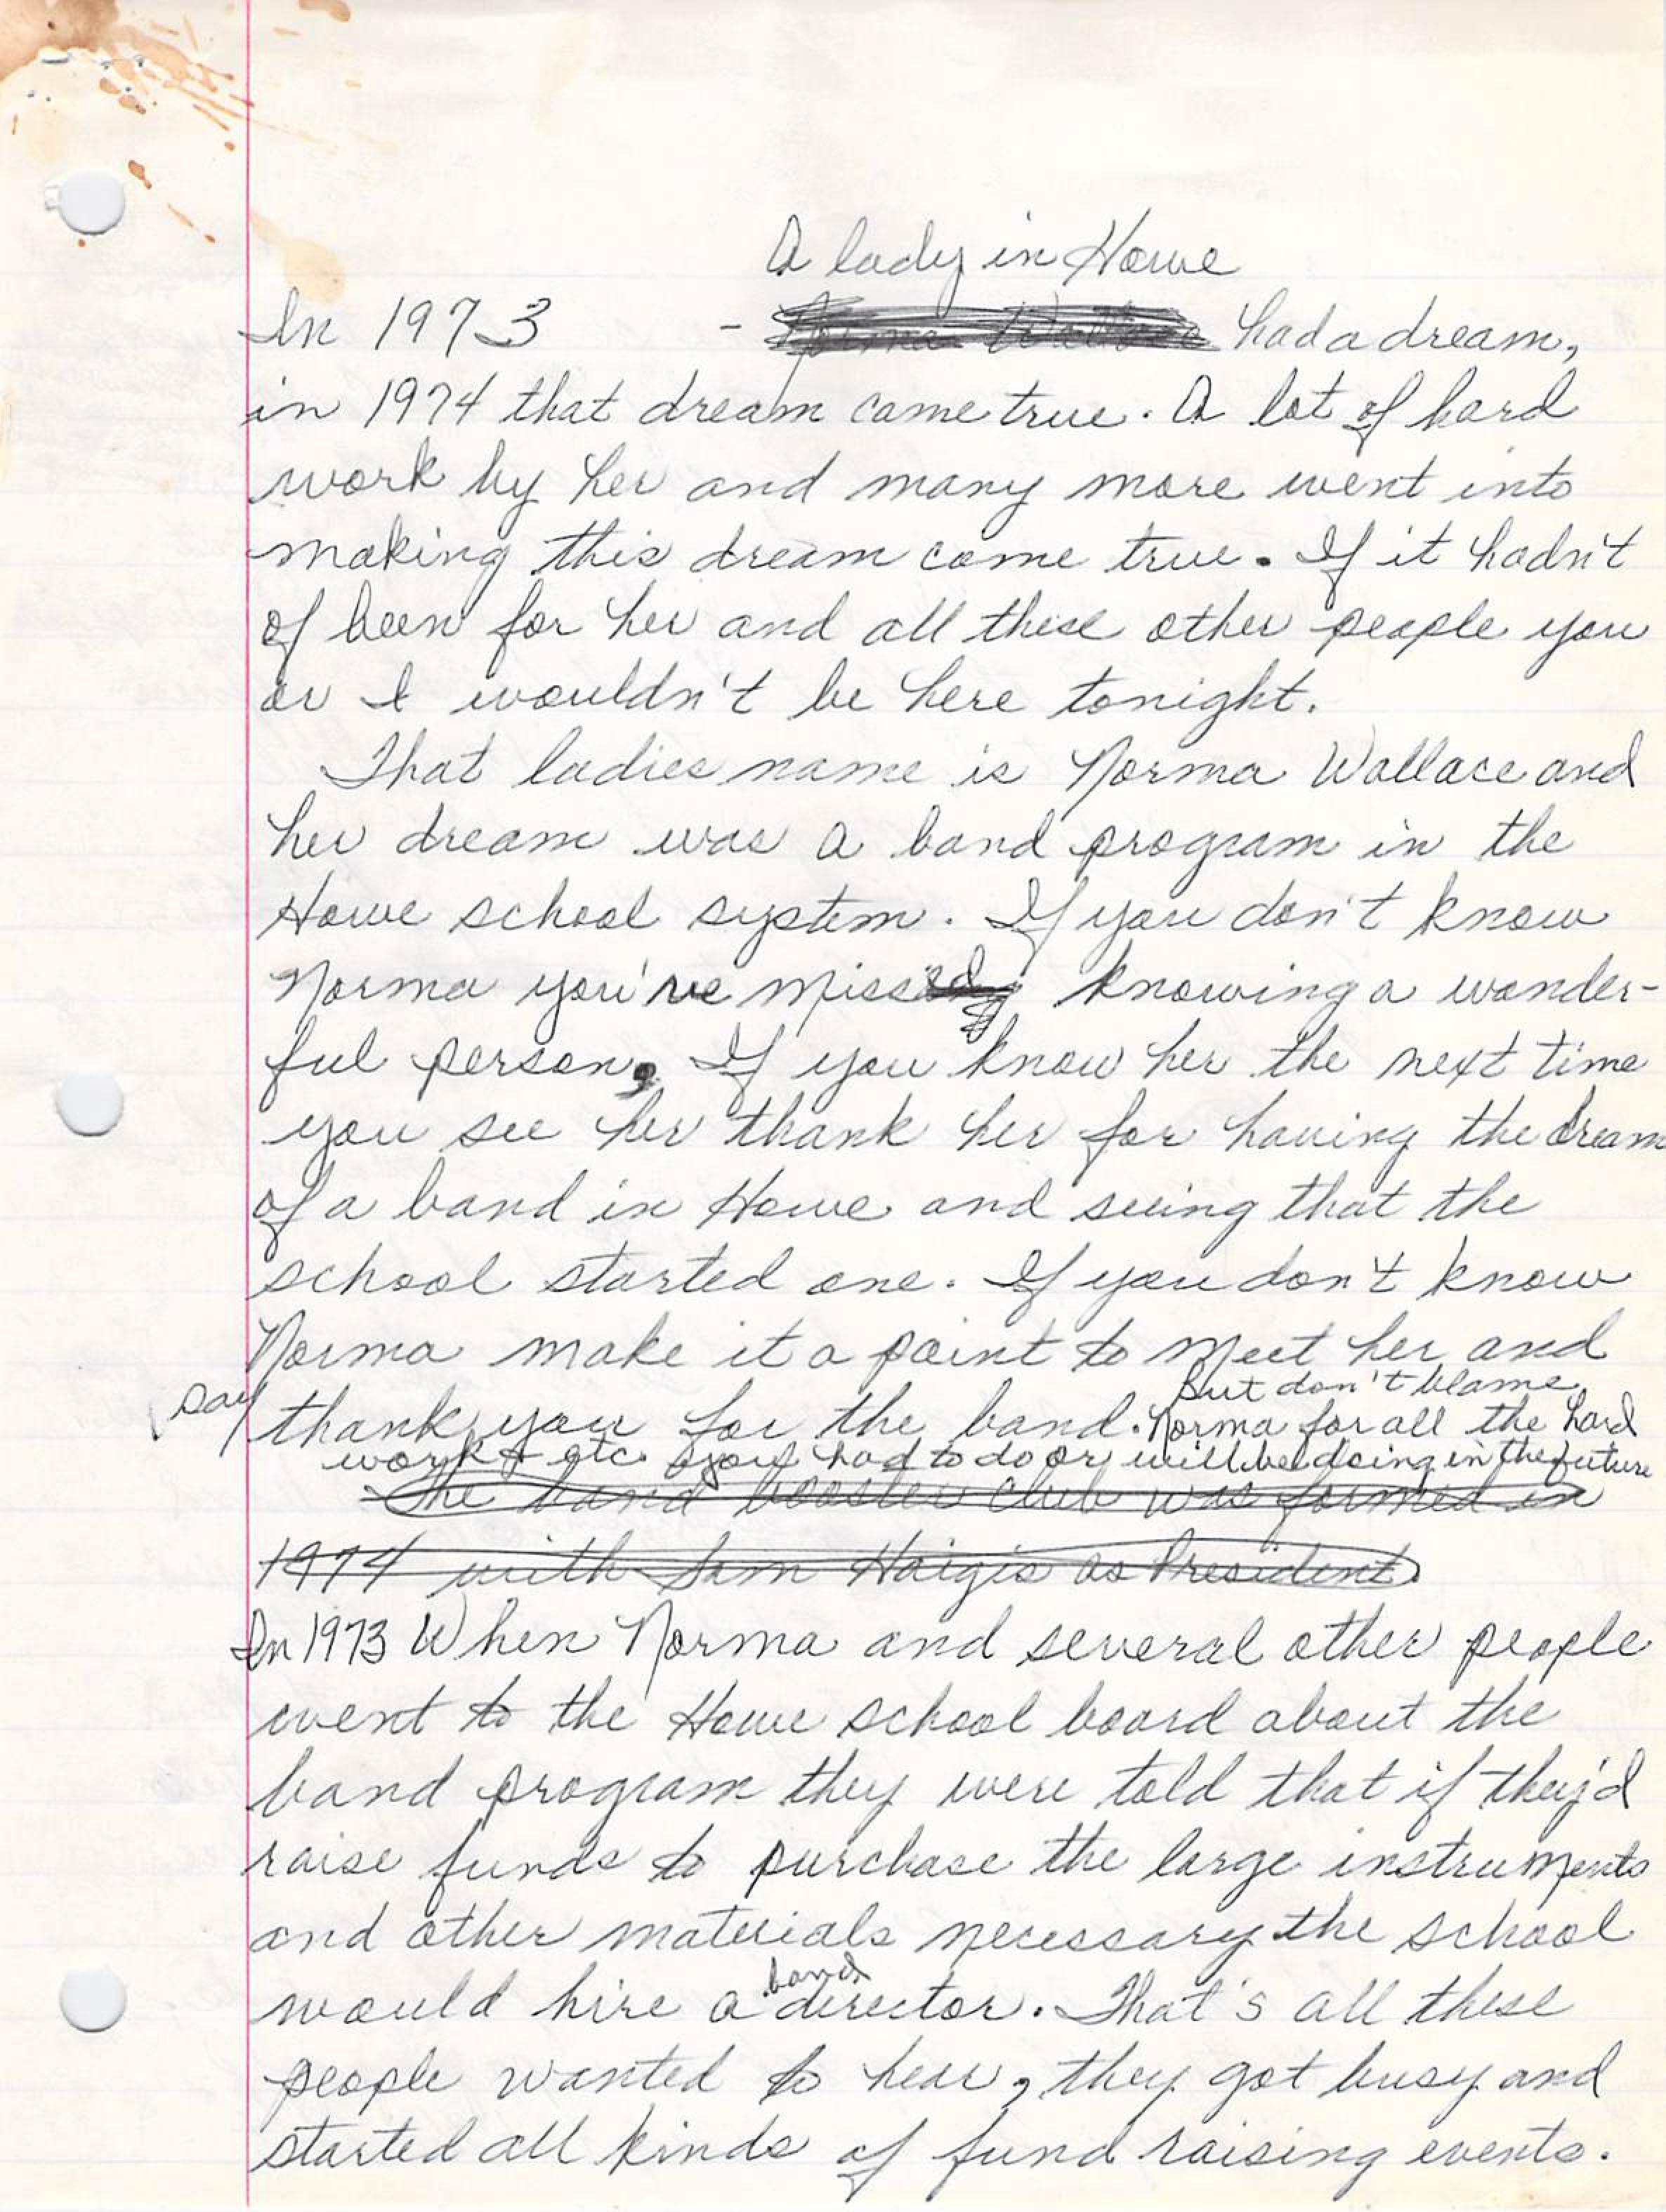 A lady in Howe
In 1973 - Norma Wallace had a dream,
in 1974 that dream came true. A lot of hard
work by her and many more went into
making this dream come true. If it hadn't
of been for her and all these other people you
or I wouldn't be here tonight.
That ladies name is Norma Wallace and
her dream was a band program in the
Howe school system. If you don't know
Norma you've missed knowing a wonder-
ful person. If you know her the next time
you see her thank her for having the dream
of a band in Howe and seeing that the
school started one. If you don't know
Norma make it a point to meet her and
But don't blame
say thank you for the band. Norma for all the hard
work & etc. you had to do or will be doing in the future
The band booster club was formed in
1974 with Sam Haigis as President.
In 1973 When Norma and several other people
went to the Howe school board about the
band program they were told that if they'd
raise funds to purchase the large instruments
and other materials necessary the school
band
would hire a director. That's all these
people wanted to hear, they got busy and
started all kinds of fund raising events.